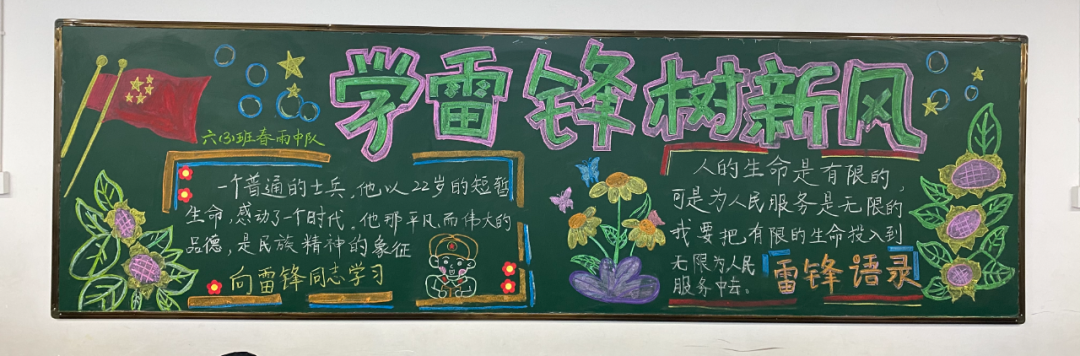 学雷锋树新风
六(3)班春雨中队
一个普通的士兵,他以22岁的短暂
生命,感动了一个时代。他那平凡而伟大的
品德,是民族精神的象征
向雷锋同志学习
人的生命是有限的,
可是为人民服务是无限的
我要把有限的生命投入到
无限为人民
服务中去。
雷锋语录